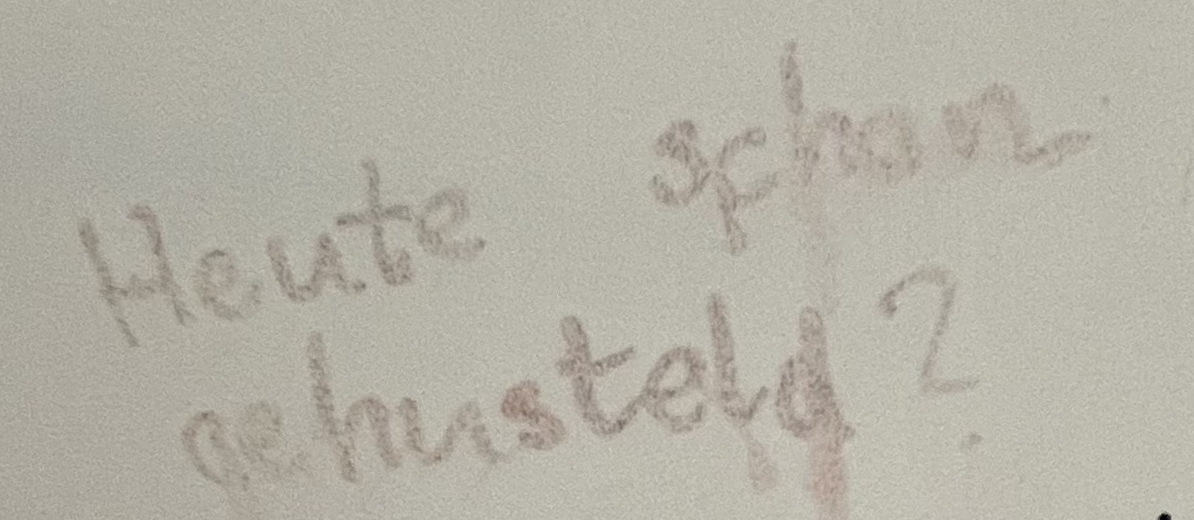 Heute schon
gehusteld?